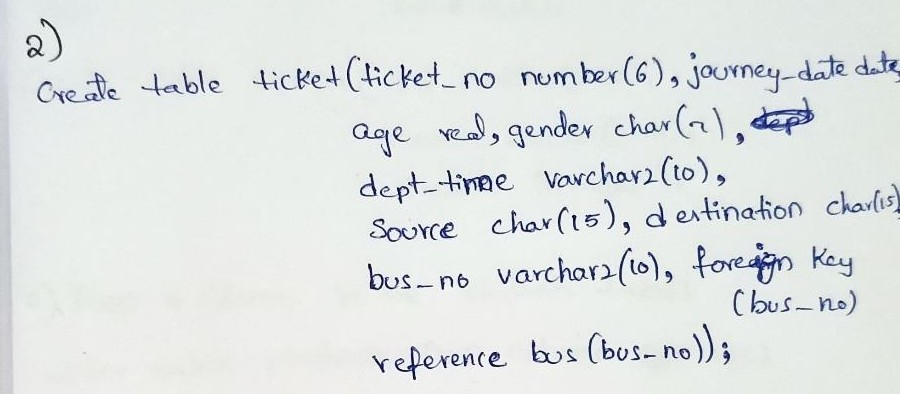 2)
Create table ticket(ticket_no number(6), journey_date date,
age real, gender char(2),
dept_time varchar2(10),
Source char(15), destination char(15)
bus_no varchar2(10), foreign key
(bus_no)
reference bus (bus_no));